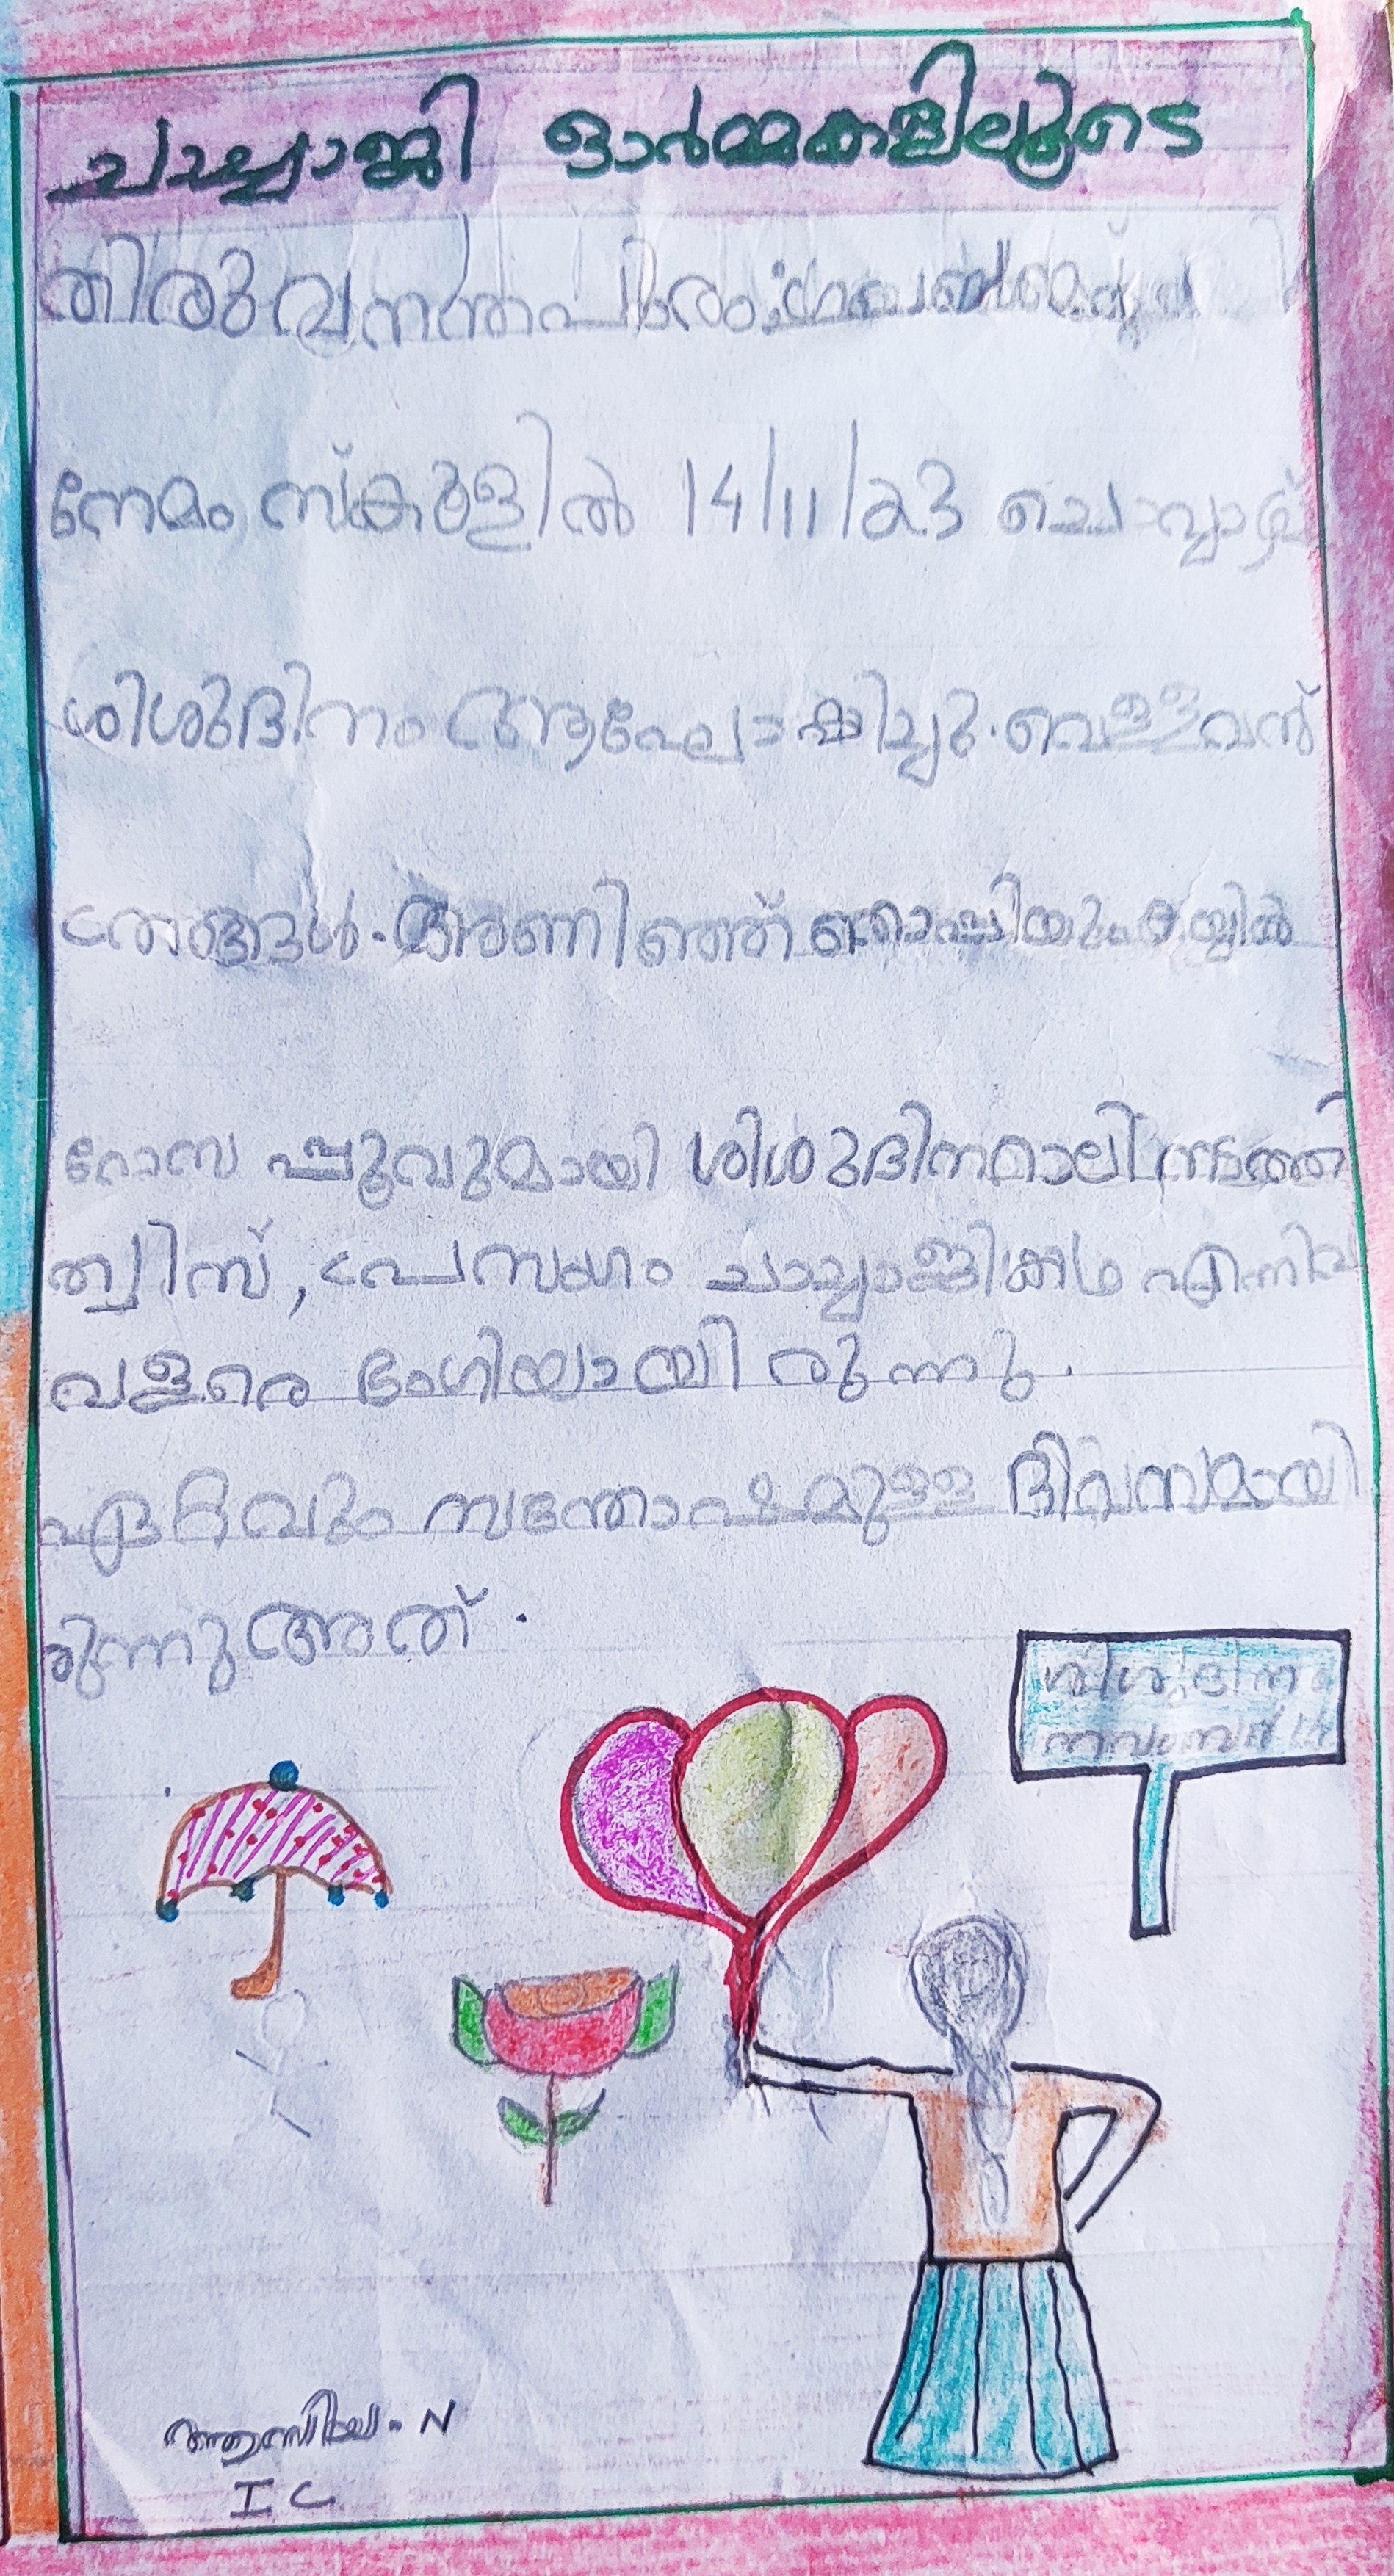 ചാച്ചാജി ഓർമ്മകളിലൂടെ
തിരുവനന്തപുരം:
നേമം സ്കൂളിൽ 14/11/23 ചൊവ്വാഴ്ച
ശിശുദിനം ആഘോഷിച്ചു. വെള്ളവസ്
ത്രങ്ങൾ. അണിഞ്ഞ് തൊപ്പിയും കയ്യിൽ
റോസ പ്പൂവുമായി ശിശുദിനറാലി നടത്തി
ക്വിസ്, പ്രസംഗം ചാച്ചാജിക്കഥ എന്നിവ
വളരെ ഭംഗിയായി രുന്നു.
ഏറ്റവും സന്തോഷമുള്ള ദിവസമായി
രുന്നു അത്.
ശിശുദിനം
നവംബർ 14
ആസിയ. N
I C